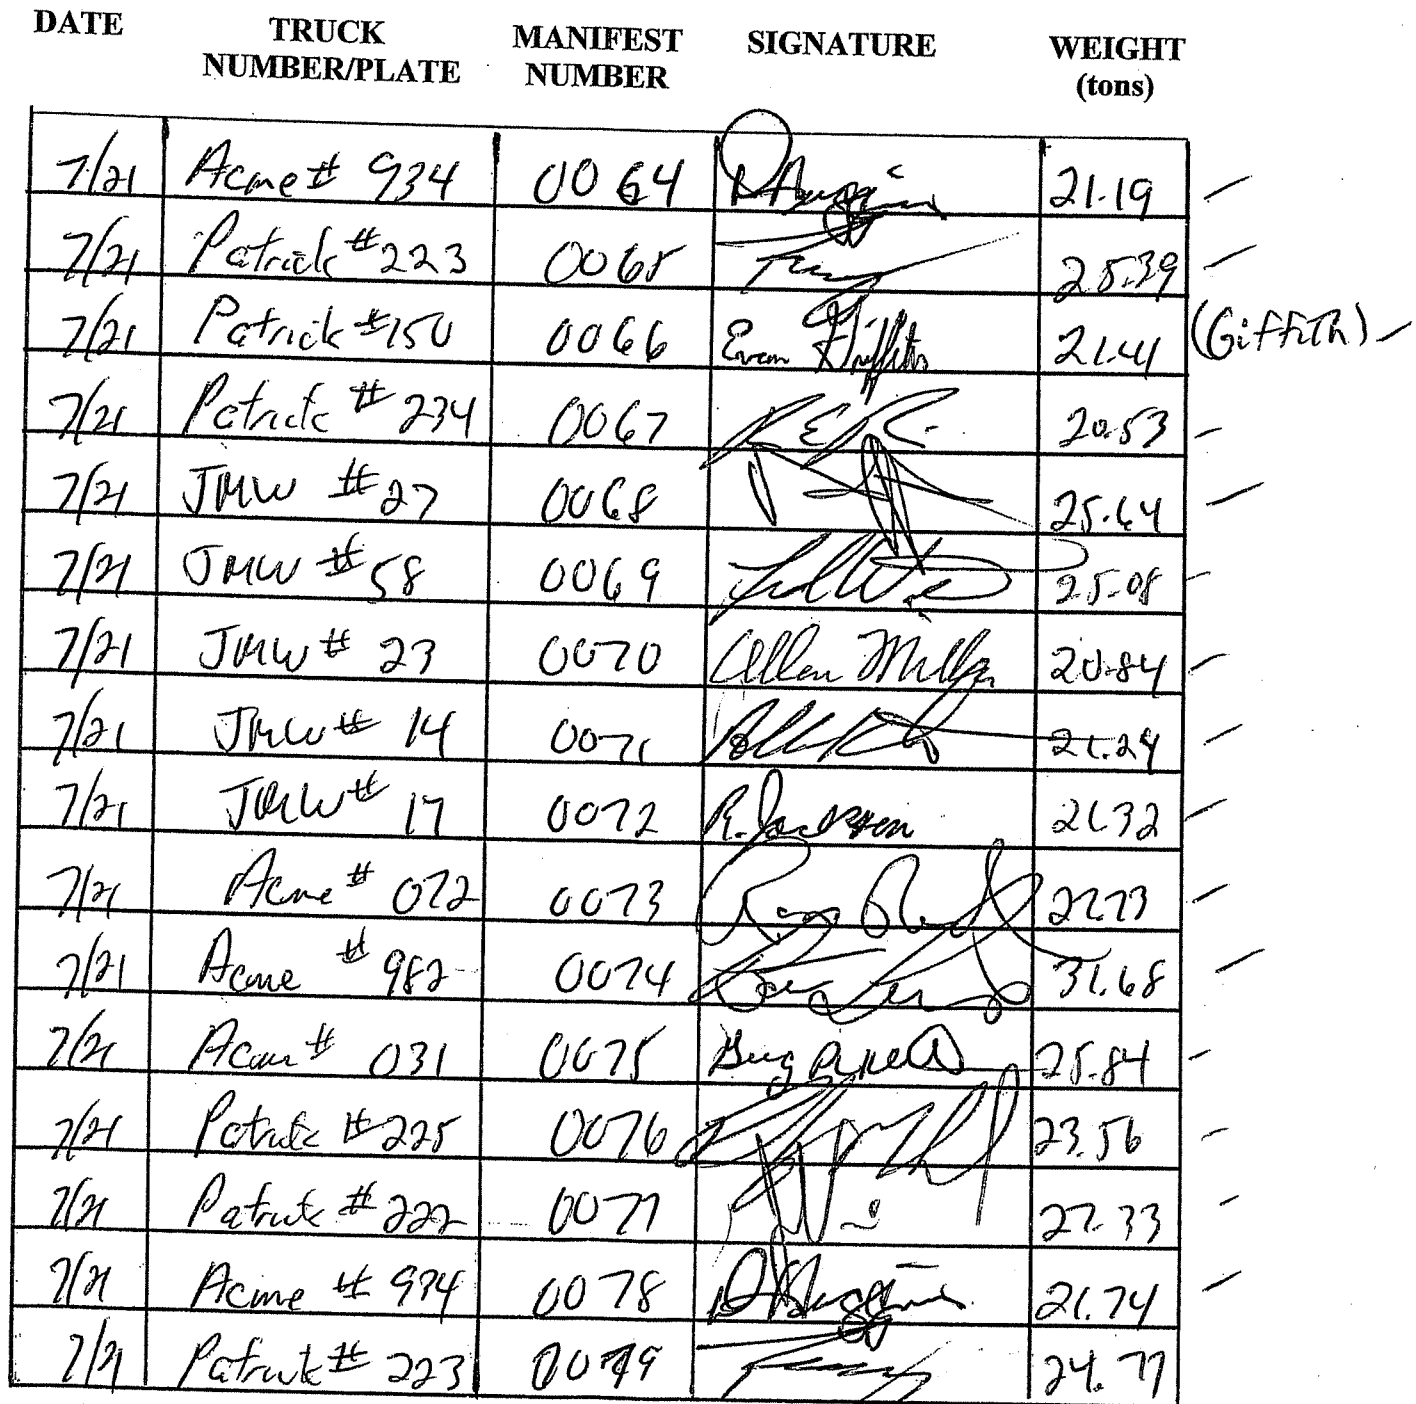 DATE TRUCK NUMBER/PLATE MANIFEST NUMBER SIGNATURE WEIGHT (tons)
7/21 Acme # 934 0064 D Huggins 21.19
7/21 Patrick #223 0065 25.39
7/21 Patrick #150 0066 Evan Griffith 21.41 (GiffiTh)
7/21 Patrick # 234 0067 20.53
7/21 JMW # 27 0068 25.64
7/21 JMW # 58 0069 25.08
7/21 JMW # 23 0070 Allen Miller 20.84
7/21 JMW # 14 0071 21.24
7/21 JMW # 17 0072 R. Jackson 21.32
7/21 Acme # 072 0073
7/21 Acme # 982 0074 31.68
7/21 Acme # 031 0075 25.84
7/21 Patrick # 225 0076 23.56
7/21 Patrick # 222 0077
7/21 Acme # 934 0078 D Huggins 21.74
7/21 Patrick # 223 0079 24.77